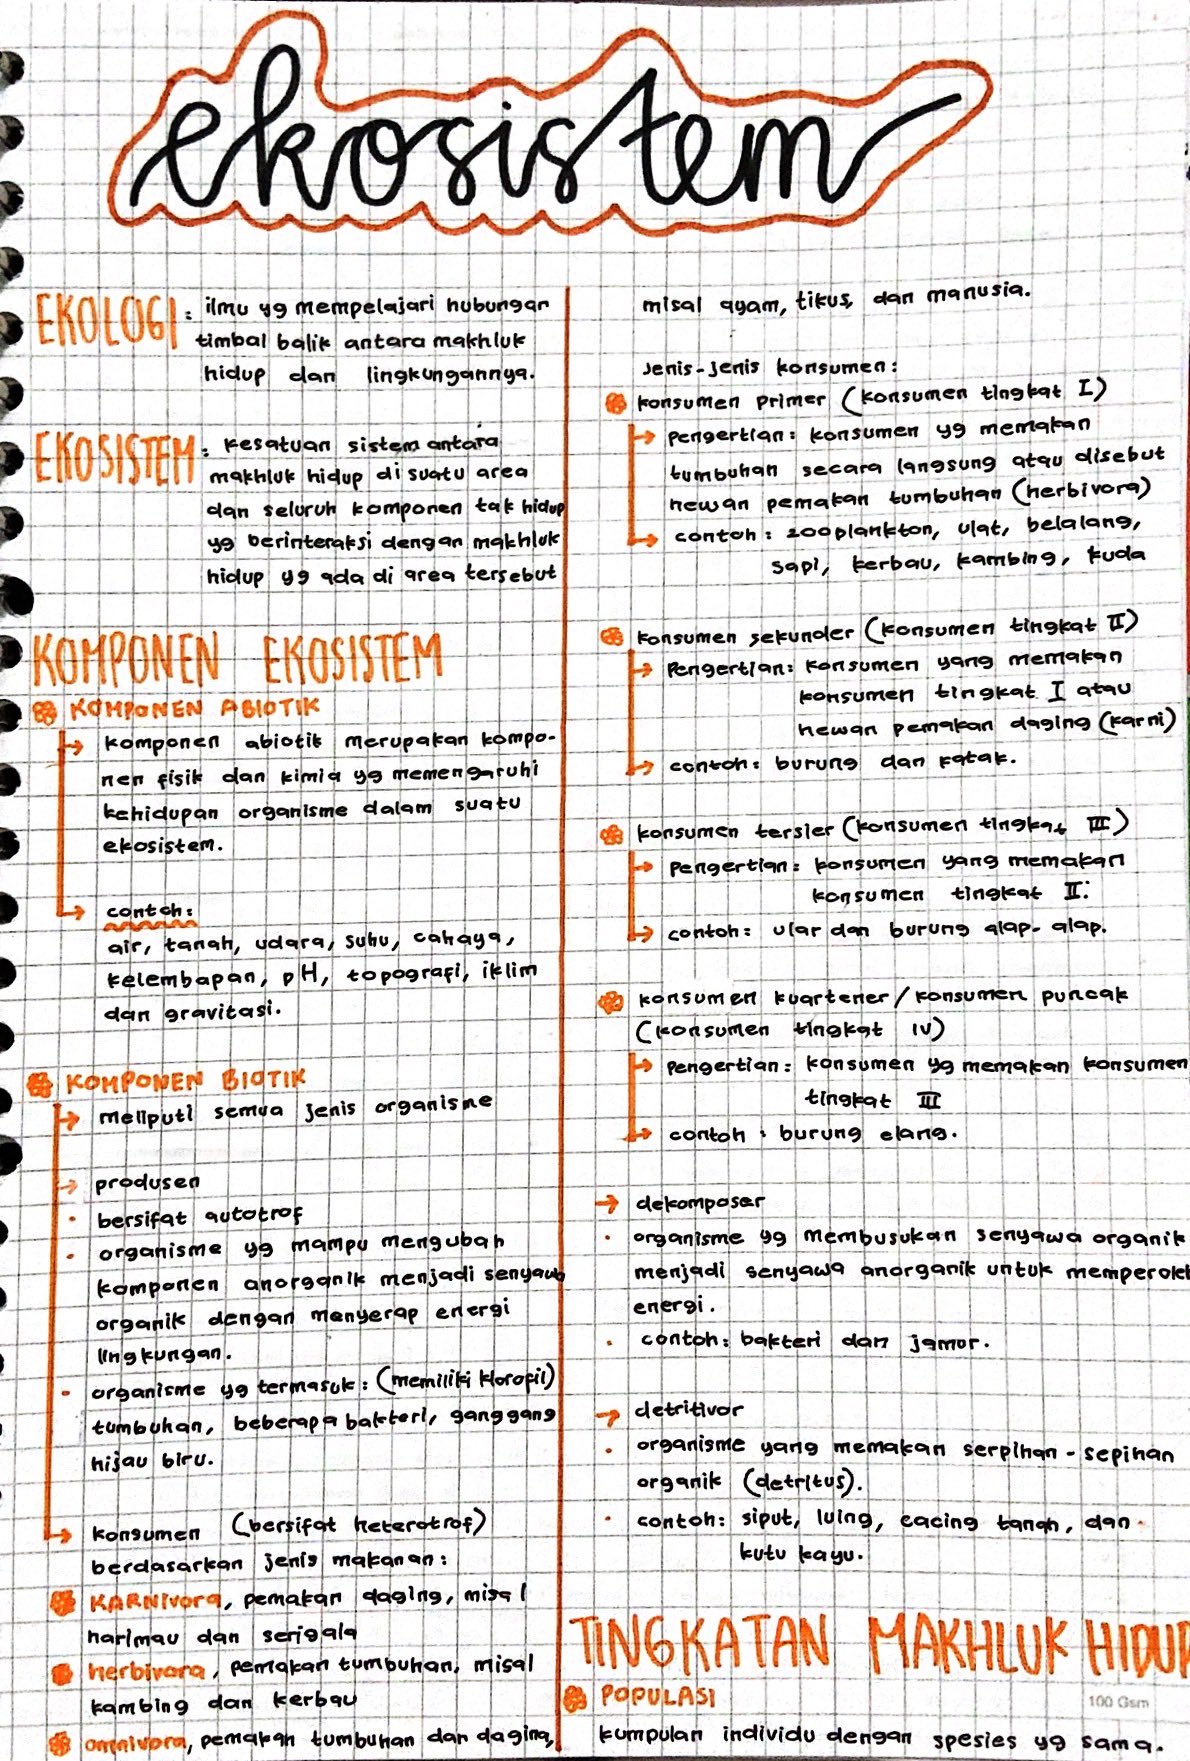 ekosistem
EKOLOGI : ilmu yg mempelajari hubungan
timbal balik antara makhluk
hidup dan lingkungannya.
EKOSISTEM : kesatuan sistem antara
makhluk hidup di suatu area
dan seluruh komponen tak hidup
yg berinteraksi dengan makhluk
hidup yg ada di area tersebut
KOMPONEN EKOSISTEM
KOMPONEN ABIOTIK
→ komponen abiotik merupakan kompo-
nen fisik dan kimia yg memengaruhi
kehidupan organisme dalam suatu
ekosistem.
→ contoh:
air, tanah, udara, suhu, cahaya,
kelembapan, pH, topografi, iklim
dan gravitasi.
KOMPONEN BIOTIK
→ meliputi semua jenis organisme
→ produsen
• bersifat autotrof
• organisme yg mampu mengubah
komponen anorganik menjadi senyawa
organik dengan menyerap energi
lingkungan.
• organisme yg termasuk : (memiliki klorofil)
tumbuhan, beberapa bakteri, ganggang
hijau biru.
→ konsumen (bersifat heterotrof)
berdasarkan jenis makanan:
KARNIvora, pemakan daging, misal
harimau dan serigala
herbivora, pemakan tumbuhan, misal
kambing dan kerbau
omnivora, pemakan tumbuhan dan daging,
misal ayam, tikus, dan manusia.
Jenis-jenis konsumen:
konsumen primer (konsumen tingkat I)
→ pengertian: konsumen yg memakan
tumbuhan secara langsung atau disebut
hewan pemakan tumbuhan (herbivora)
→ contoh : zooplankton, ulat, belalang,
sapi, kerbau, kambing, kuda
konsumen sekunder (konsumen tingkat II)
→ Pengertian: konsumen yang memakan
konsumen tingkat I atau
hewan pemakan daging (karni)
→ contoh: burung dan katak.
konsumen tersier (konsumen tingkat III)
→ pengertian: konsumen yang memakan
konsumen tingkat II.
→ contoh: ular dan burung alap-alap.
konsumen kuartener / konsumen puncak
(konsumen tingkat IV)
→ pengertian: konsumen yg memakan konsumen
tingkat III
→ contoh : burung elang.
→ dekomposer
• organisme yg membusukan senyawa organik
menjadi senyawa anorganik untuk memperoleh
energi.
• contoh: bakteri dan jamur.
→ detritivor
• organisme yang memakan serpihan - sepihan
organik (detritus).
• contoh: siput, luing, cacing tanah, dan
kutu kayu.
TINGKATAN MAKHLUK HIDUP
POPULASI
100 Gsm
kumpulan individu dengan spesies yg sama.